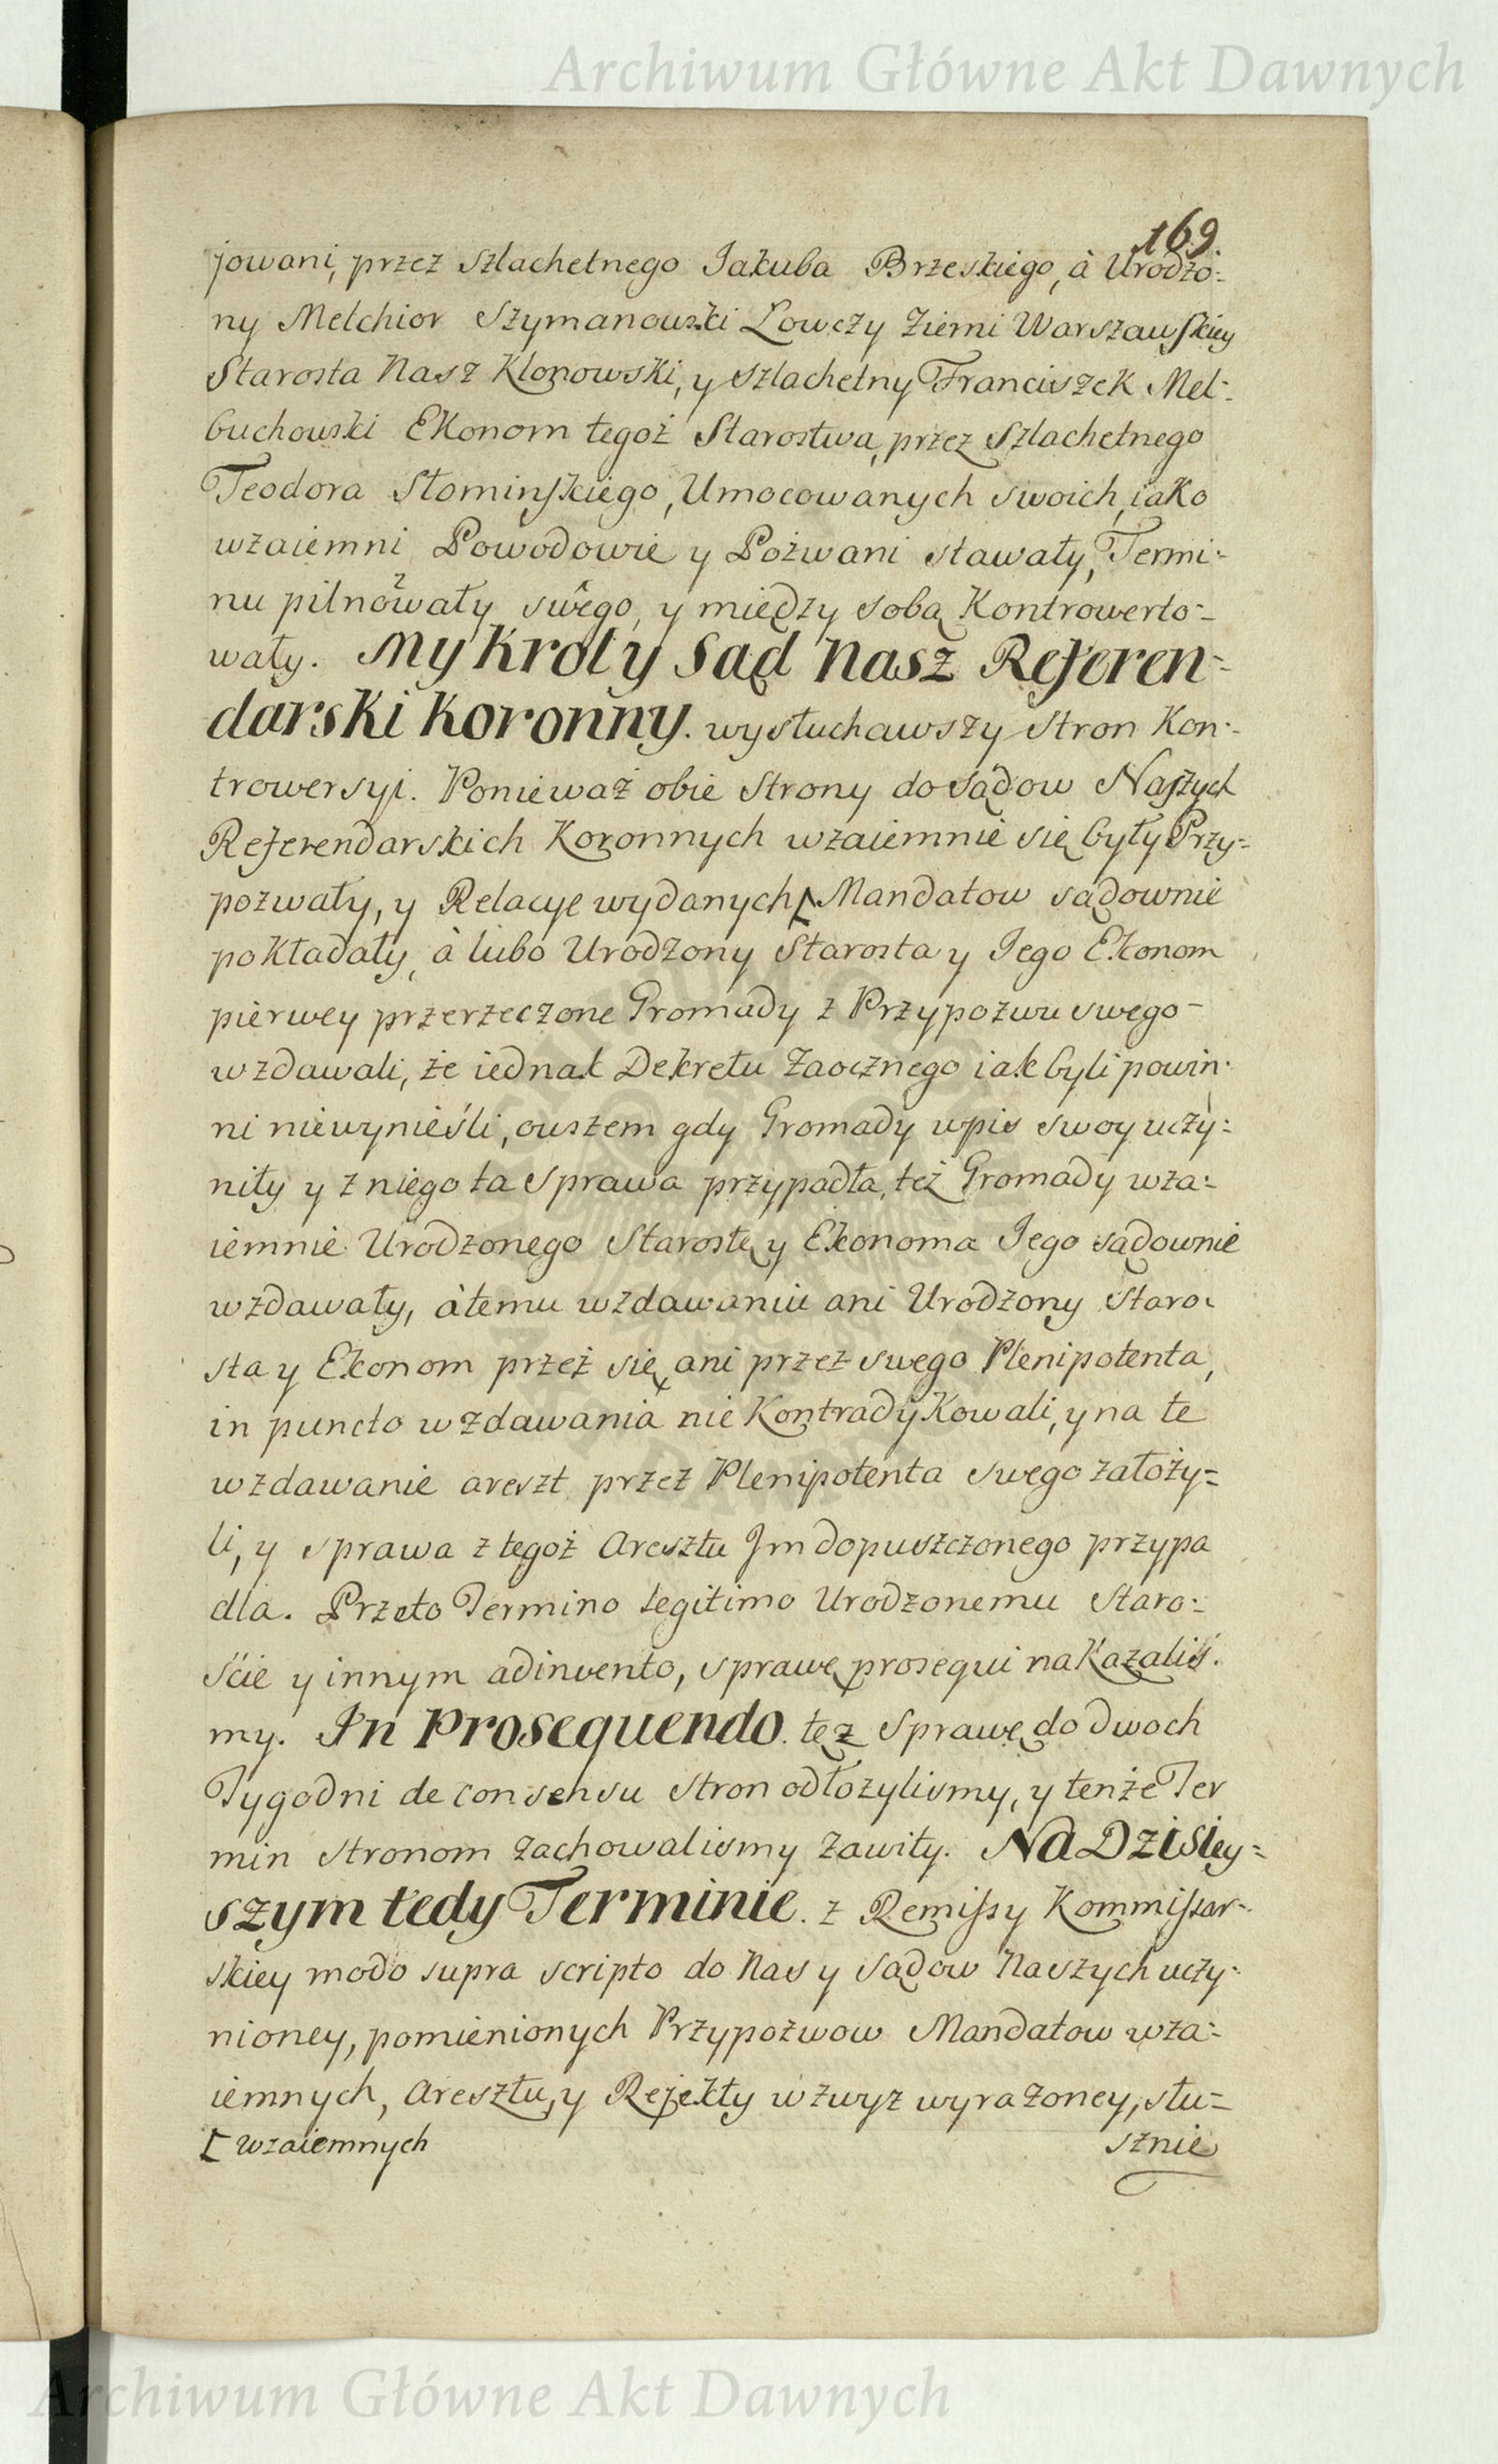 Archiwum Główne Akt Dawnych
169.
jowani, przez Szlachetnego Jakuba Brzeskiego, à Urodzo-
ny Melchior Szymanowski Łowczy Ziemi Warszawskiey
Starosta Nasz Klonowski, y Szlachetny Franciszek Mel-
buchowski Ekonom tegoż Starostwa, przez Szlachetnego
Teodora Słominskiego, Umocowanych swoich, iako
wzaiemni Powodowie y Pozwani stawały, Termi-
nu pilnowały swego, y między sobą Kontrowerto-
wały. My Krol y Sąd Nasz Referen-
darski Koronny. wysłuchawszy Stron Kon-
trowersyi. Ponieważ obie Strony do Sądow Naszych
Referendarskich Koronnych wzaiemnie się były Przy-
pozwały, y Relacye wydanych [ Mandatow sądownie
pokładały, à lubo Urodzony Starosta y Jego Ekonom
pierwey przerzeczone Gromady z Przypozwu swego
wzdawali, że iednak Dekretu Zaocznego iak byli powin-
ni niewynieśli, owszem gdy Gromady wpis swoy uczy-
niły y z niego ta Sprawa przypadła, też Gromady wza-
iemnie Urodzonego Starostę y Ekonoma Jego sądownie
wzdawały, à temu wzdawaniu ani Urodzony Staro-
sta y Ekonom przez się, ani przez swego Plenipotenta,
in puncto wzdawania nie Kontradykowali, y na te
wzdawanie areszt przez Plenipotenta swego założy-
li, y sprawa z tegoż Aresztu Jm dopuszczonego przypa
dła. Przeto Termino legitimo Urodzonemu Staro-
ście y innym adinvento, sprawę prosequi nakazaliś-
my. In Prosequendo. tęż Sprawę do dwoch
Tygodni de consensu Stron odłożylismy, y tenże Ter
min stronom zachowalismy zawity. Na Dzisiey-
szym tedy Terminie. z Remissy Kommissar-
skiey modo supra scripto do Nas y Sądow Naszych uczy-
nioney, pomienionych Przypozwow Mandatow wza-
iemnych, Aresztu, y Rejekty wzwyz wyrażoney, słu-
[ wzaiemnych
sznie
Archiwum Główne Akt Dawnych